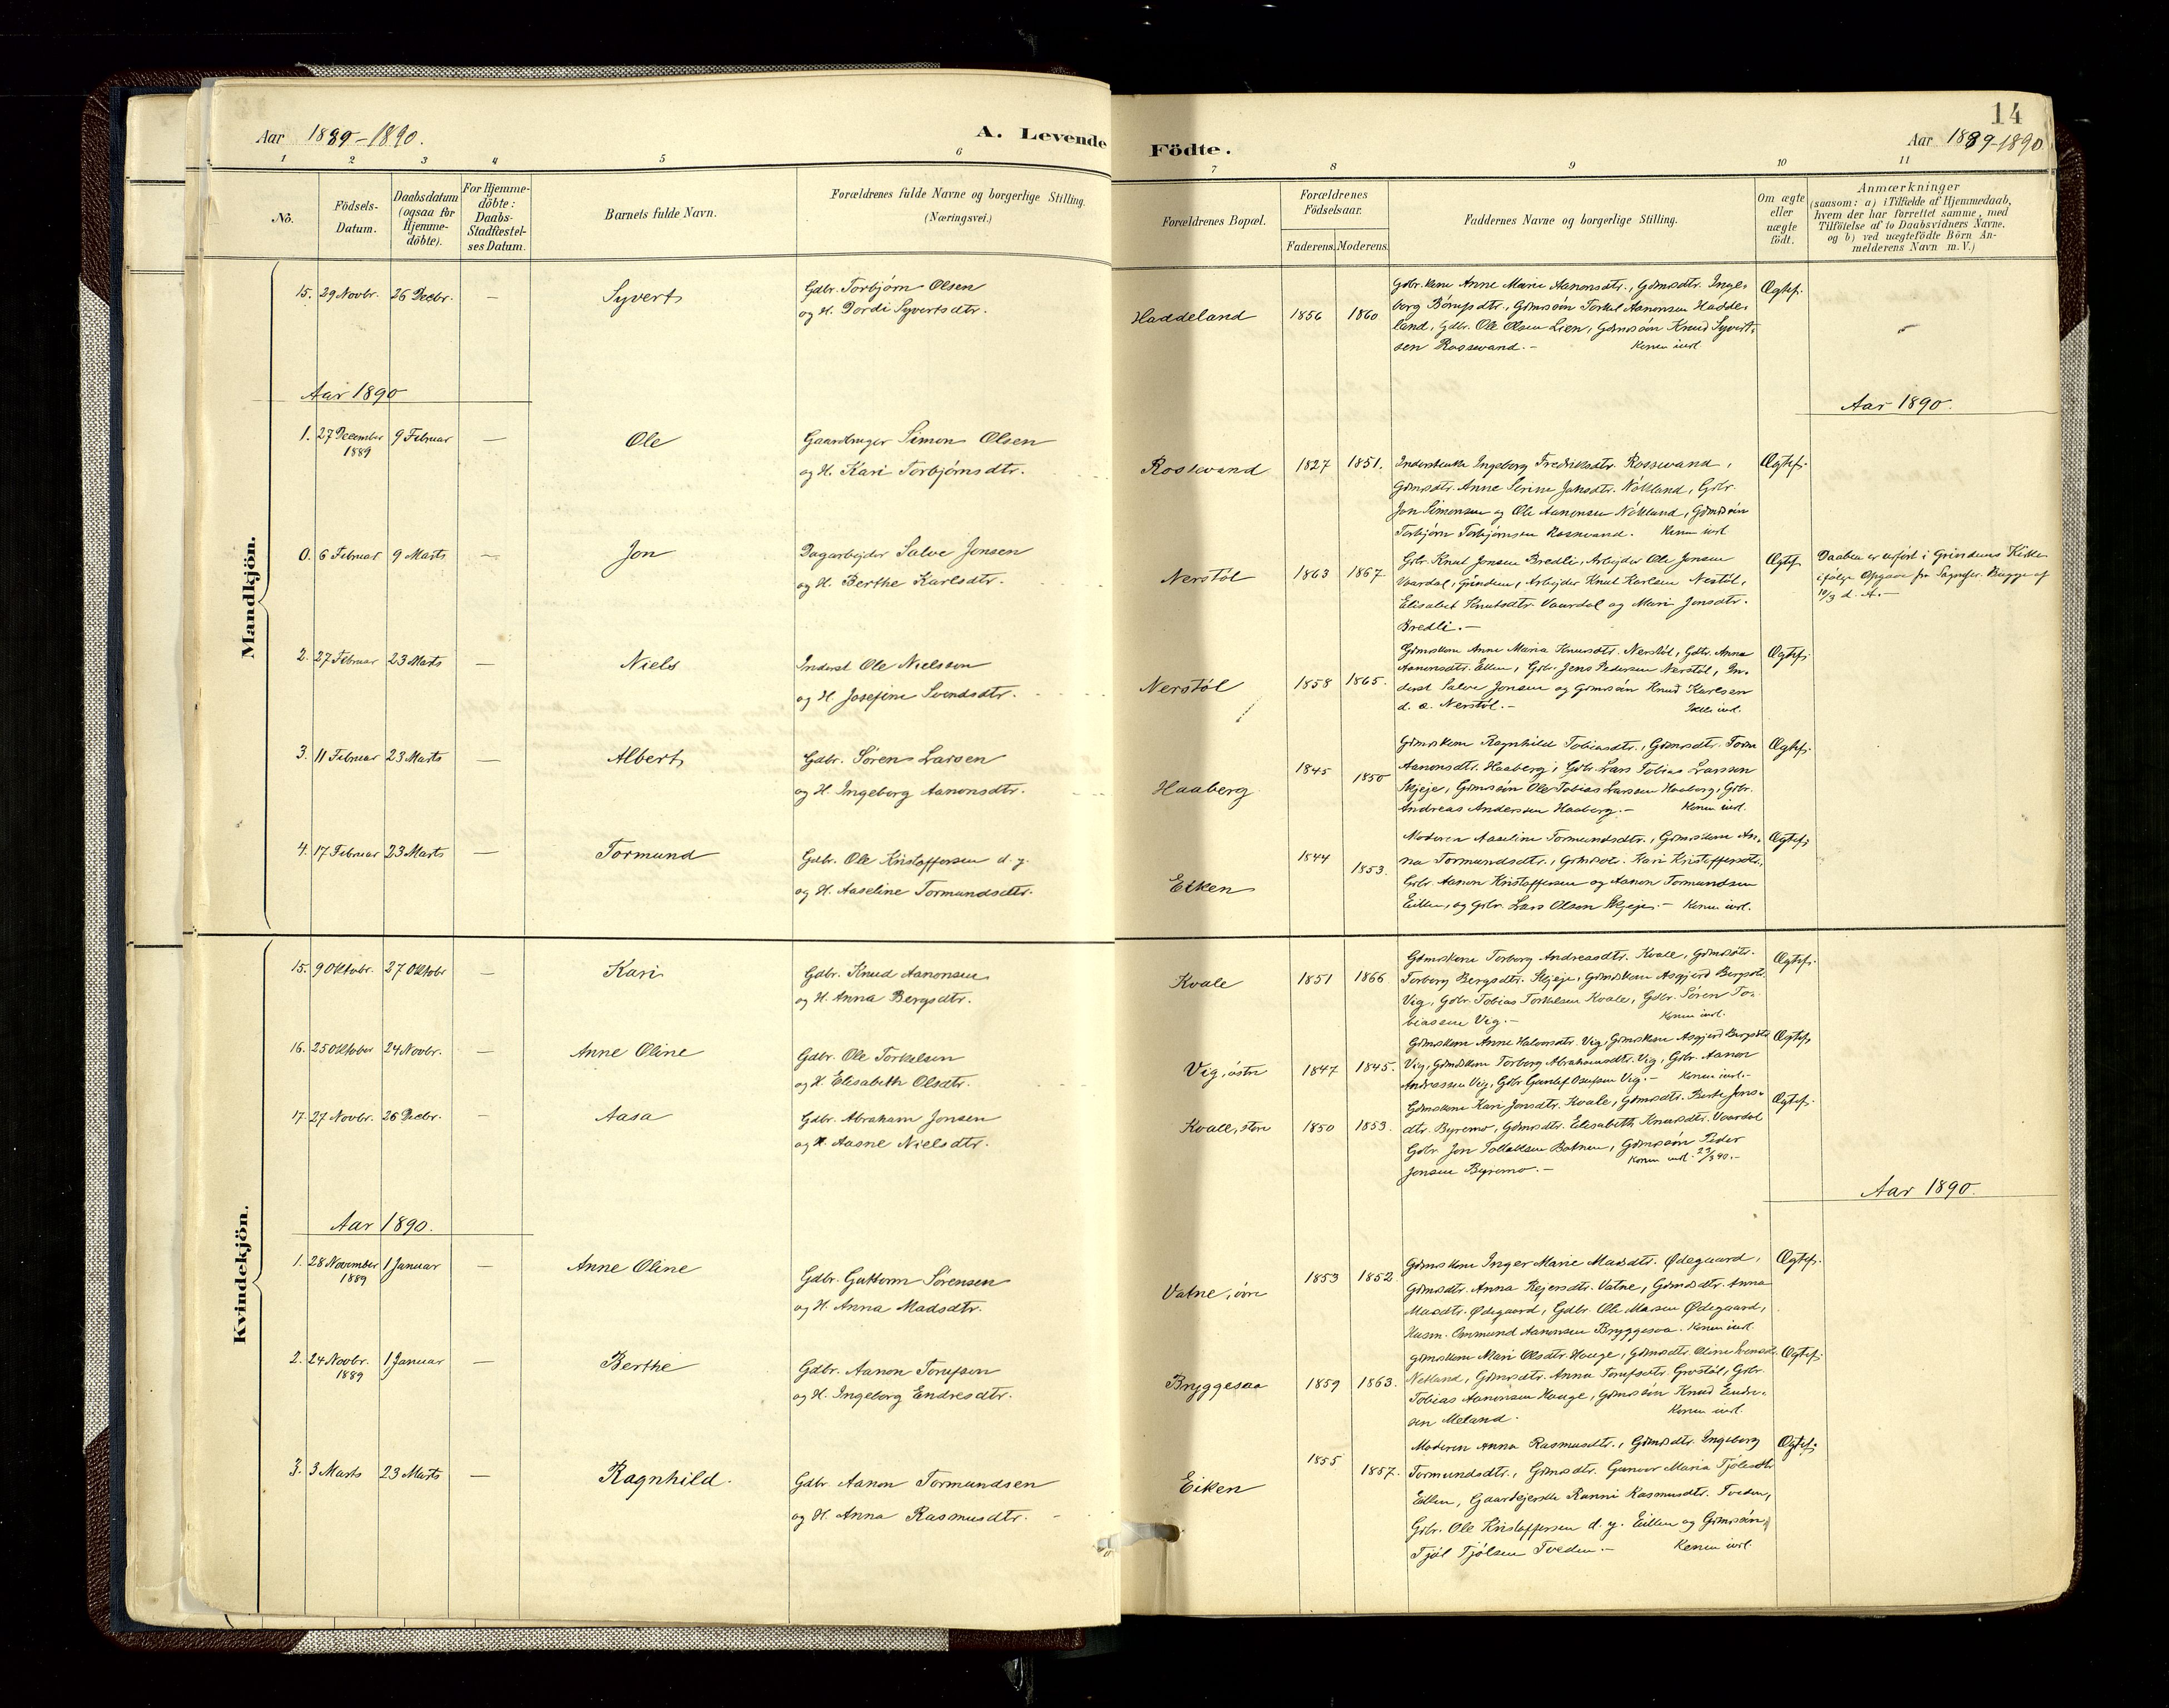 14
Aar 1889-1890. A. Levende Födte. Aar 1889-1890
1 2 3 4 5 6 7 8 9 10 11
No.
Födsels-
Datum.
Daabsdatum
(ogsaa for
Hjemme-
döbte).
For Hjemme-
döbte:
Daabs-
Stadfæstel-
ses Datum.
Barnets fulde Navn.
Forældrenes fulde Navne og borgerlige Stilling.
(Næringsvei.)
Forældrenes Bopæl.
Forældrenes
Födselsaar.
Faderens. Moderens.
Faddernes Navne og borgerlige Stilling.
Om ægte
eller
uægte
födt.
Anmærkninger
(saasom: a) i Tilfælde af Hjemmedaab,
hvem der har forrettet samme, med
Tilföielse af to Daabsvidners Navne,
og b) ved uægtefödte Börn An-
melderens Navn m. V.)
Mandkjön.
15. 29 Novbr. 26 Decbr. — Syvert
Gdbr. Torbjörn Olsen
og H. Dordi Syvertsdtr.
Haddeland 1856 1860
Gdbr.kone Anne Marie Aanonsdtr., Gdmdsdtr. Inge-
borg Börufsdtr., Gdmdsön Torkel Aanonsen Hadde-
land, Gdbr. Ole Olsen Lien, Gdmdsön Knud Syvert-
sen Rossevand. — Konen indl.
Ægtef.
Aar 1890
Aar 1890.
1. 27 December 9 Februar — Ole
1889
Gaardbruger Simon Olsen
og H. Kari Torbjörnsdtr.
Rossevand 1827 1851.
Inderstenke Ingeborg Fredriksdtr. Rossevand,
Gdmdsdtr. Anne Serine Jonsdtr. Nökland, Gdbr.
Jon Simonsen og Ole Aanonsen Nökland, Gdmdsön
Torbjörn Torbjörnsen Rossevand. Konen indl
Ægtef.
0. 6 Februar 9 Marts — Jon
Dagarbejder Salve Jonsen
og H. Berthe Karlsdtr.
Nerstöl 1863 1867
Gdbr. Knut Jonsen Bredli, Arbejder Ole Jonsen
Vaardal, Grindum, Arbejder Knut Karlsen Nestöl,
Elisabet Knutsdtr. Vaardal og Mari Jonsdtr.
Bredli. —
Ægtef.
Daaben er udfört i Grindums Kirke
ifölge Opgave fra Sognepr. Bugge af
10/3 d. A. —
2. 27 Februar 23 Marts — Niels
Inderst Ole Nielssen
og H. Josefine Svendsdtr.
Nerstöl 1858 1865.
Gdmdskone Anne Maria Knudsdtr. Nerstöl, Gdtr. Anna
Aanonsdtr. Eiken, Gdbr. Jens Pedersen Nerstöl, In-
derst Salve Jonsen og Gdmdsön Knud Karlsen
d. a. Nerstöl. —
Ægtef.
3. 11 Februar 23 Marts — Albert
Gdbr. Sören Larsen
og H. Ingeborg Aanonsdtr.
Haaberg 1845 1850
Gdmdskone Ragnhild Tobiasdtr., Gdmdsdtr. Tone
Aanonsdtr. Haaberg, Gdbr. Lars Tobias Larssen
Skjeje, Gdmdsön Ole Tobias Larssen Haaberg, Gdbr.
Andreas Anderssen Haaberg. — Konen indl.
Ægtef.
4. 17 Februar 23 Marts — Tormund
Gdbr. Ole Kristoffersen d. y.
og H. Aaseline Tormundsdtr.
Eiken 1844 1853.
Moderen Aaseline Tormundsdtr., Gdmdskone An-
na Tormundsdtr., Gdmdsdtr. Kari Kristoffersdtr.,
Gdbr. Aanon Kristoffersen og Aanon Tormundsen
Eiken, og Gdbr. Lars Olsen Skjeje. — Konen indl.
Ægtef.
Kvindekjön.
15. 9 Oktobr. 27 Oktobr — Kari
Gdbr. Knud Aanonsen
og H. Anna Bergsdtr.
Kvale 1851 1866
Gdmdskone Torborg Andreasdtr. Kvale, Gdmdsdtr.
Torborg Bergsdtr. Skjeje, Gdmdskone Asgjerd Bergsdtr.
Vig, Gdbr. Tobias Torkelsen Kvale, Gdbr. Sören To-
biassen Vig. — Konen indl.
Ægtef.
16. 25 Oktober 24 Novbr. — Anne Oline
Gdbr. Ole Torkelsen
og H. Elisabeth Olsdtr.
Vig, östre 1847 1845.
Gdmdskone Anne Halvorsdtr. Vig, Gdmdskone Asgjerd Bergsdtr
Vig, Gdmdskone Torborg Abrahamsdtr. Vig, Gdbr. Aanon
Andreassen Vig, Gdbr. Gunlef Osufsen Vig. — Konen indl. —
Ægtef.
17. 27 Novbr. 26 Decbr. — Aasa
Gdbr. Abraham Jonsen
og H. Aasne Nielsdtr.
Kvale, store 1850 1853.
Gdmdskone Kari Jonsdtr. Kvale, Gdmdsdtr. Berte Jons-
dtr. Byremo, Gdmdsdtr. Elisabeth Knudsdtr. Vaardal
Gdbr. Jon Tollaksen Botnen, Gdmdsön Peder
Jonsen Byremo. — Konen indl. 23/3 90. —
Ægtef.
Aar 1890.
Aar 1890.
1. 28 November 1 Januar — Anne Oline
1889
Gdbr. Guttorm Sörensen
og H. Anna Madsdtr.
Vatne, övre 1853 1852
Gdmdskone Inger Marie Madsdtr. Ødegaard,
Gdmdsdtr. Anna Rejersdtr. Vatne, Gdmdsdtr. Anna
Madsdtr. Ødegaard, Gdbr. Ole Madsen Ødegaard,
Husm. Ommund Aanonsen Bryggesaa. Konen indl.
Ægtef.
2. 24 Novbr. 1 Januar — Berthe
1889
Gdbr. Aanon Torufsen
og H. Ingeborg Endresdtr.
Bryggesaa 1859 1863.
Gdmdskone Mari Olsdtr. Houge, Gdmdsdtr. Oline
Netland, Gdmdsdtr. Anna Torufsdtr. Grostöl, Gdbr.
Tobias Aanonsen Houge, Gdmdsön Knud Endre-
sen Meland. Konen indl.
Ægtef.
3. 3 Marts 23 Marts — Ragnhild.
Gdbr. Aanon Tormundsen
og H. Anna Rasmusdtr.
Eiken 1855 1857.
Moderen Anna Rasmusdtr., Gdmdsdtr. Ingeborg
Tormundsdtr., Gdmdsdtr. Gunvor Maria Tjölsdtr
Eiken, Gaardejerske Ranni Rasmusdtr. Tveden,
Gdbr. Ole Kristoffersen d. y. Eiken og Gdmdsön
Tjöl Tjölsen Tveden. — Konen indl.
Ægtef.